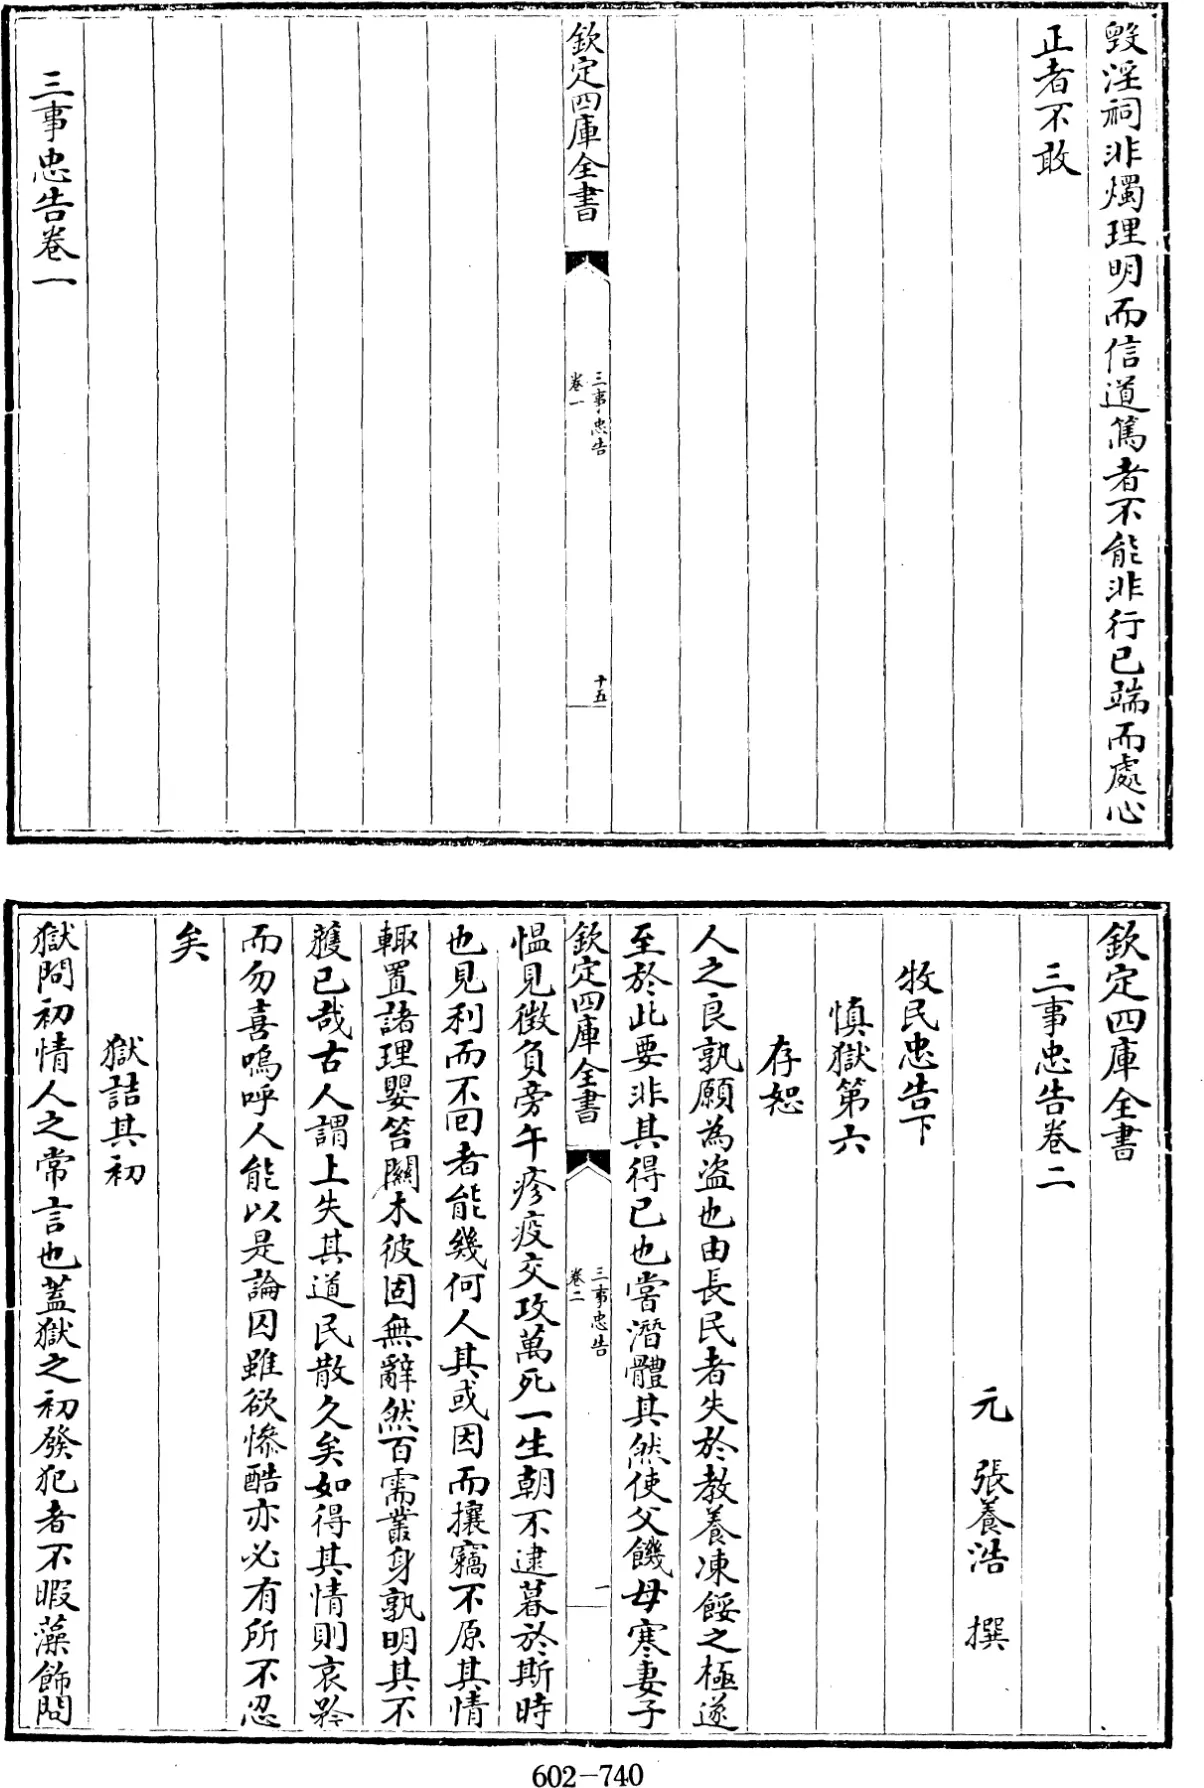 毀淫祠非燭理明而信道篤者不能非行已端而處心
正者不敢
欽定四庫全書
三事忠告
卷一
十五
三事忠告卷一
欽定四庫全書
三事忠告卷二
元 張養浩 撰
牧民忠告下
慎獄第六
存恕
人之良孰願為盜也由長民者失於教養凍餒之極遂
至於此要非其得已也嘗潛體其然使父饑母寒妻子
欽定四庫全書
三事忠告
卷二
一
愠見徵負旁午疹疫交攻萬死一生朝不逮暮於斯時
也見利而不回者能幾何人其或因而攘竊不原其情
輙置諸理嬰笞關木彼固無辭然百需叢身孰明其不
獲已哉古人謂上失其道民散久矣如得其情則哀矜
而勿喜嗚呼人能以是論囚雖欲慘酷亦必有所不忍
矣
獄詰其初
獄問初情人之常言也蓋獄之初發犯者不暇藻飾問
602-740